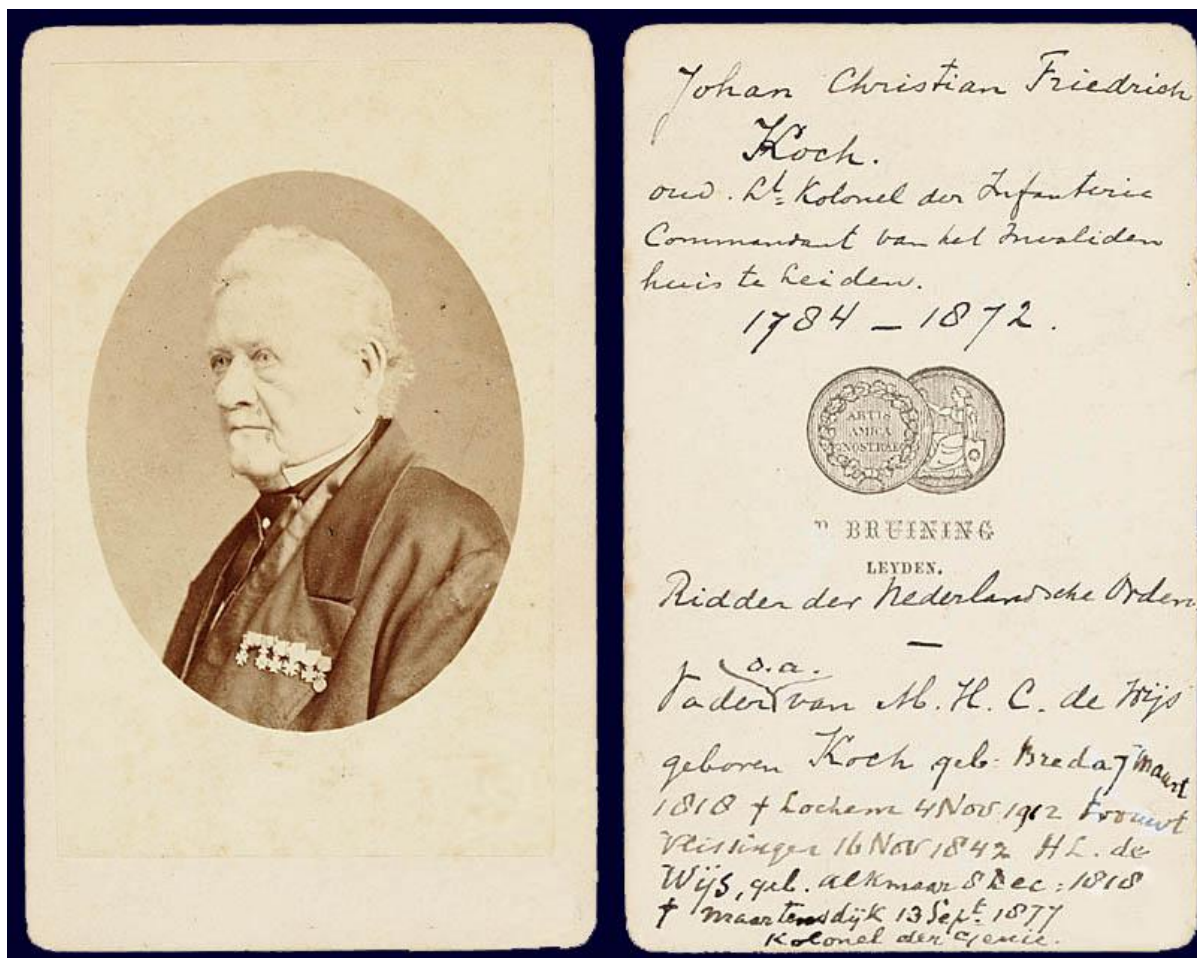 Johan Christian Friedrich
Koch.
oud. Lt Kolonel der Infanterie
Commandant van het Invaliden
huis te Leiden.
1784 – 1872.
ARTIS
AMICA
NOSTRAE
BRUINING
LEYDEN.
Ridder der Nederlandsche Orden
—
o.a.
Vader van M. H. C. de Wijs
geboren Koch geb. Breda 7 Maart
1818 † Lochem 4 Nov 1912 trouwt
Vlissingen 16 Nov 1842 H L. de
Wijs, geb. Alkmaar 8 Dec: 1818
† Maartensdijk 13 Sept. 1877
Kolonel der Genie.